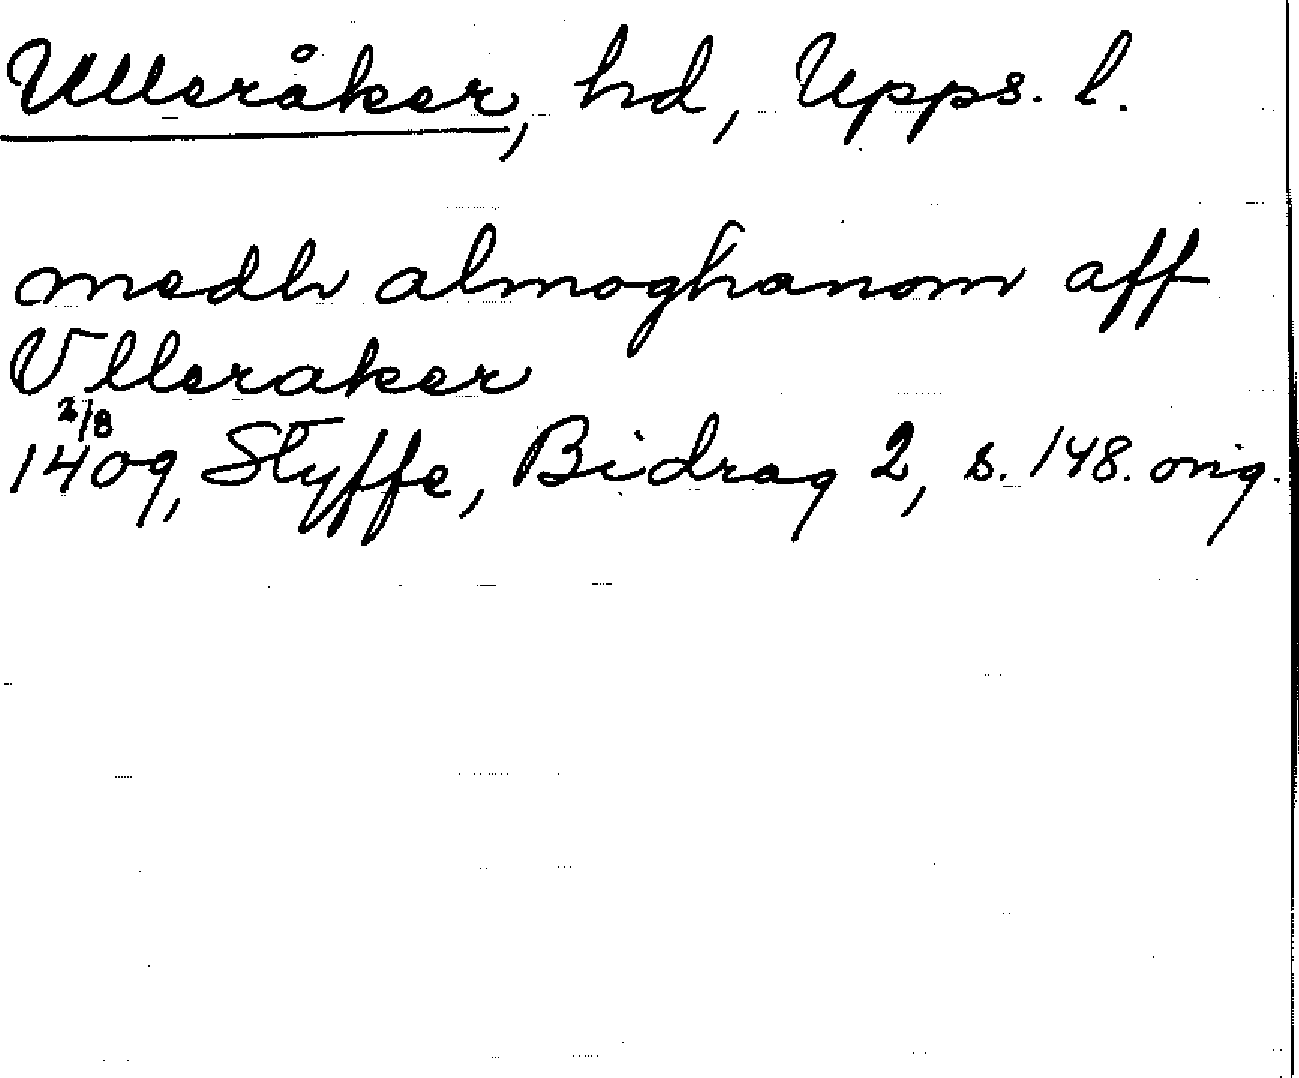 Ulleråker, hd, Upps. l.
medh almoghanom aff
Vlleraker
2/8
1409, Styffe, Bidrag 2, s. 148. orig.